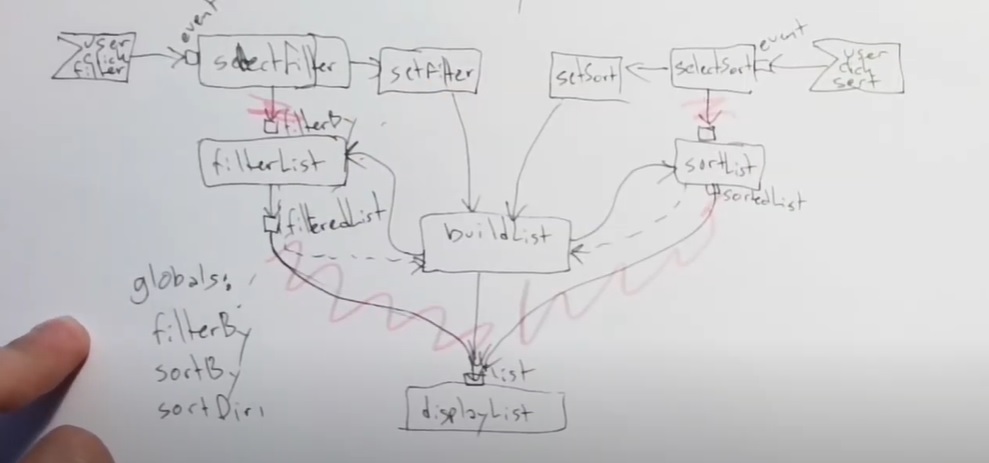 event
user
click
filter
selectFilter
setFilter
setSort
selectSort
event
user
click
sort
filterBy
filterList
sortList
filteredList
sortedList
buildList
globals:
filterBy
sortBy
sortDir
list
displayList